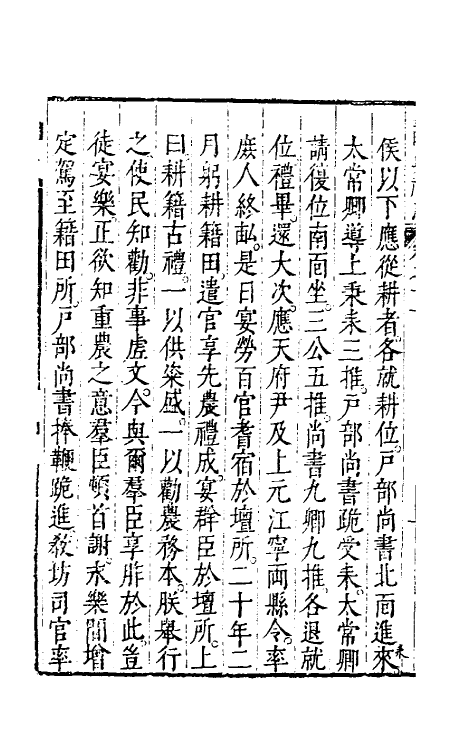 侯以下應從耕者。各就耕位。戸部尚書北靣進耒
太常卿導上秉耒三推。戸部尚書跪受耒。太常卿
請復位南靣坐。三公五推。尚書九卿九推。各退就
位禮畢。還大次。應天府尹及上元江寧兩縣令。率
庶人終畝。是日宴勞百官耆宿於壇所。二十年二
月躬耕籍田。遣官享先農禮成。宴群臣於壇所。上
曰耕籍古禮。一以供粢盛。一以勸農務本。朕舉行
之使民知勸。非事虗文。今與爾羣臣享胙於此。豈
徒宴樂。正欲知重農之意羣臣頓首謝。永樂間增
定駕至籍田所。戸部尚書捧鞭跪進。敎坊司官率